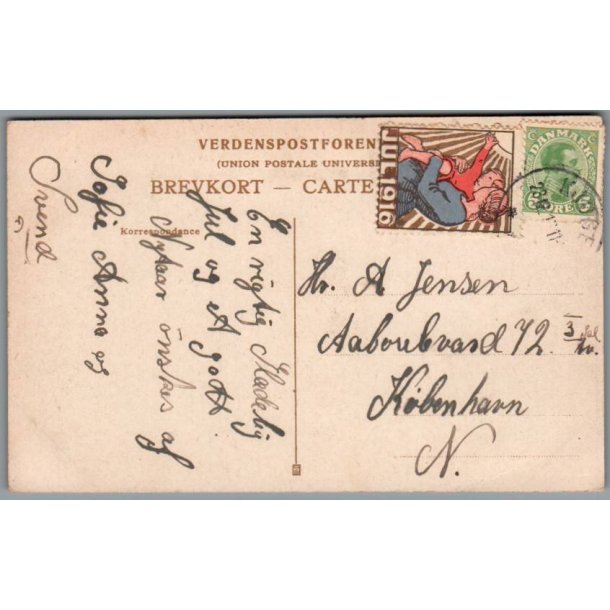 VERDENSPOSTFOREN
(UNION POSTALE UNIVERS
BREVKORT — CARTE
Korrespondance
JUL 1916
DANMARK
5 ØRE
KØGE
En rigtig Glædelig
Jul og A godt
Nytaar önskes af
Sofie Anna og
Svend
Hr. A Jensen
Aaboulevard 72. 3 Sal
København
N.